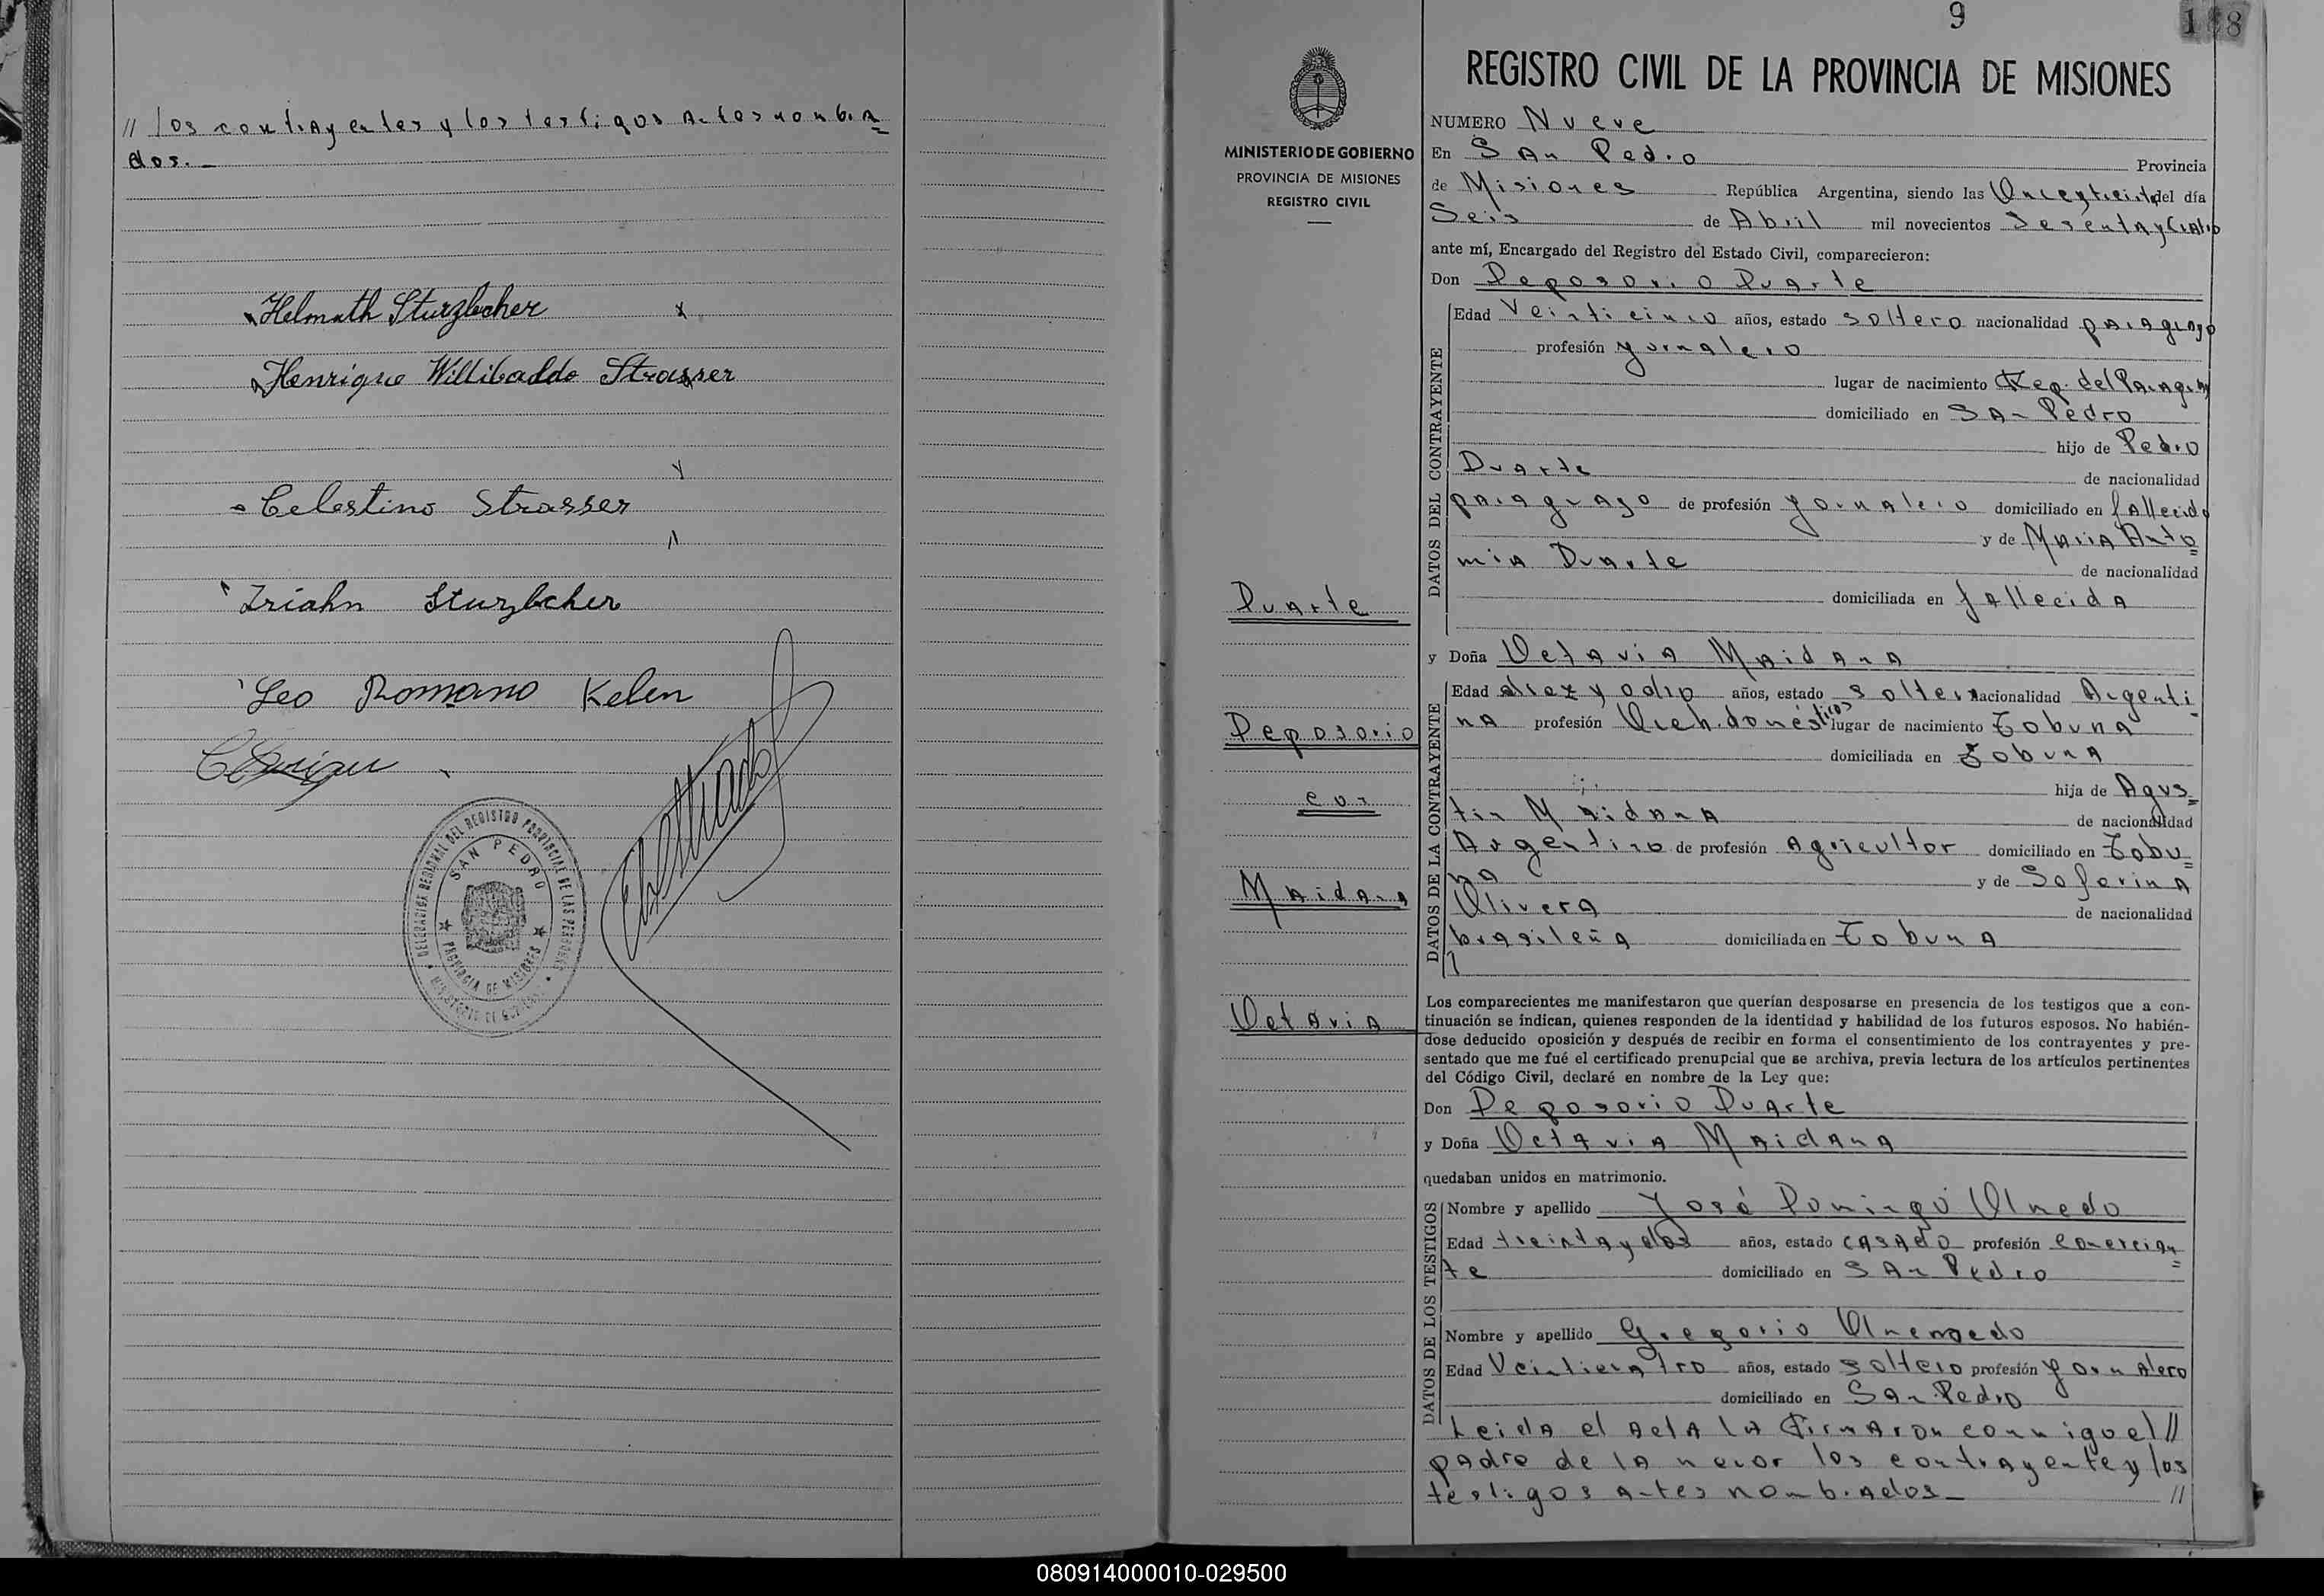 // los contrayentes y los testigos antes nombra=
dos.-
Helmuth Sturzbecher
Henrique Willibaldo Strasser
Celestino Strasser
Sturzbcher
Leo Romano Kelen
DELEGACION REGIONAL DEL REGISTRO PROVINCIAL DE LAS PERSONAS
SAN PEDRO
PROVINCIA DE MISIONES
MINISTERIO DE GOBIERNO
9
188
MINISTERIO DE GOBIERNO
PROVINCIA DE MISIONES
REGISTRO CIVIL
Duarte
Deposorio
con
Maidana
Octavia
REGISTRO CIVIL DE LA PROVINCIA DE MISIONES
NUMERO Nueve
En San Pedro Provincia
de Misiones República Argentina, siendo las Once y treinta del día
Seis de Abril mil novecientos Sesenta y Cuatro
ante mí, Encargado del Registro del Estado Civil, comparecieron:
Don Deposorio Duarte
DATOS DEL CONTRAYENTE
Edad Veinticinco años, estado soltero nacionalidad paraguayo
profesión yornalero
lugar de nacimiento Rep. del Paraguay
domiciliado en San Pedro
hijo de Pedro
Duarte de nacionalidad
paraguayo de profesión yornalero domiciliado en fallecido
y de Maria Anto=
mia Duarte de nacionalidad
domiciliada en fallecida
y Doña Octavia Maidana
DATOS DE LA CONTRAYENTE
Edad diez y ocho años, estado soltera nacionalidad Argenti-
na profesión Queh. domésticos lugar de nacimiento Tobuna
domiciliada en Tobuna
hija de Agus=
tin Maidana de nacionalidad
Argentino de profesión Agricultor domiciliado en Tobu=
na y de Soferina
Olivera de nacionalidad
brasileña domiciliada en Tobuna
Los comparecientes me manifestaron que querían desposarse en presencia de los testigos que a con-
tinuación se indican, quienes responden de la identidad y habilidad de los futuros esposos. No habién-
dose deducido oposición y después de recibir en forma el consentimiento de los contrayentes y pre-
sentado que me fué el certificado prenupcial que se archiva, previa lectura de los artículos pertinentes
del Código Civil, declaré en nombre de la Ley que:
Don Deposorio Duarte
y Doña Octavia Maidana
quedaban unidos en matrimonio.
DATOS DE LOS TESTIGOS
Nombre y apellido José Domingo Olmedo
Edad treinta y dos años, estado casado profesión comercian=
te domiciliado en San Pedro
Nombre y apellido Gregorio
Edad Veinticuatro años, estado soltero profesión yornalero
domiciliado en San Pedro
Leida el acta la firmaron conmigo el //
padre de la menor los contrayente y los
testigos antes nombrados- //
080914000010-029500